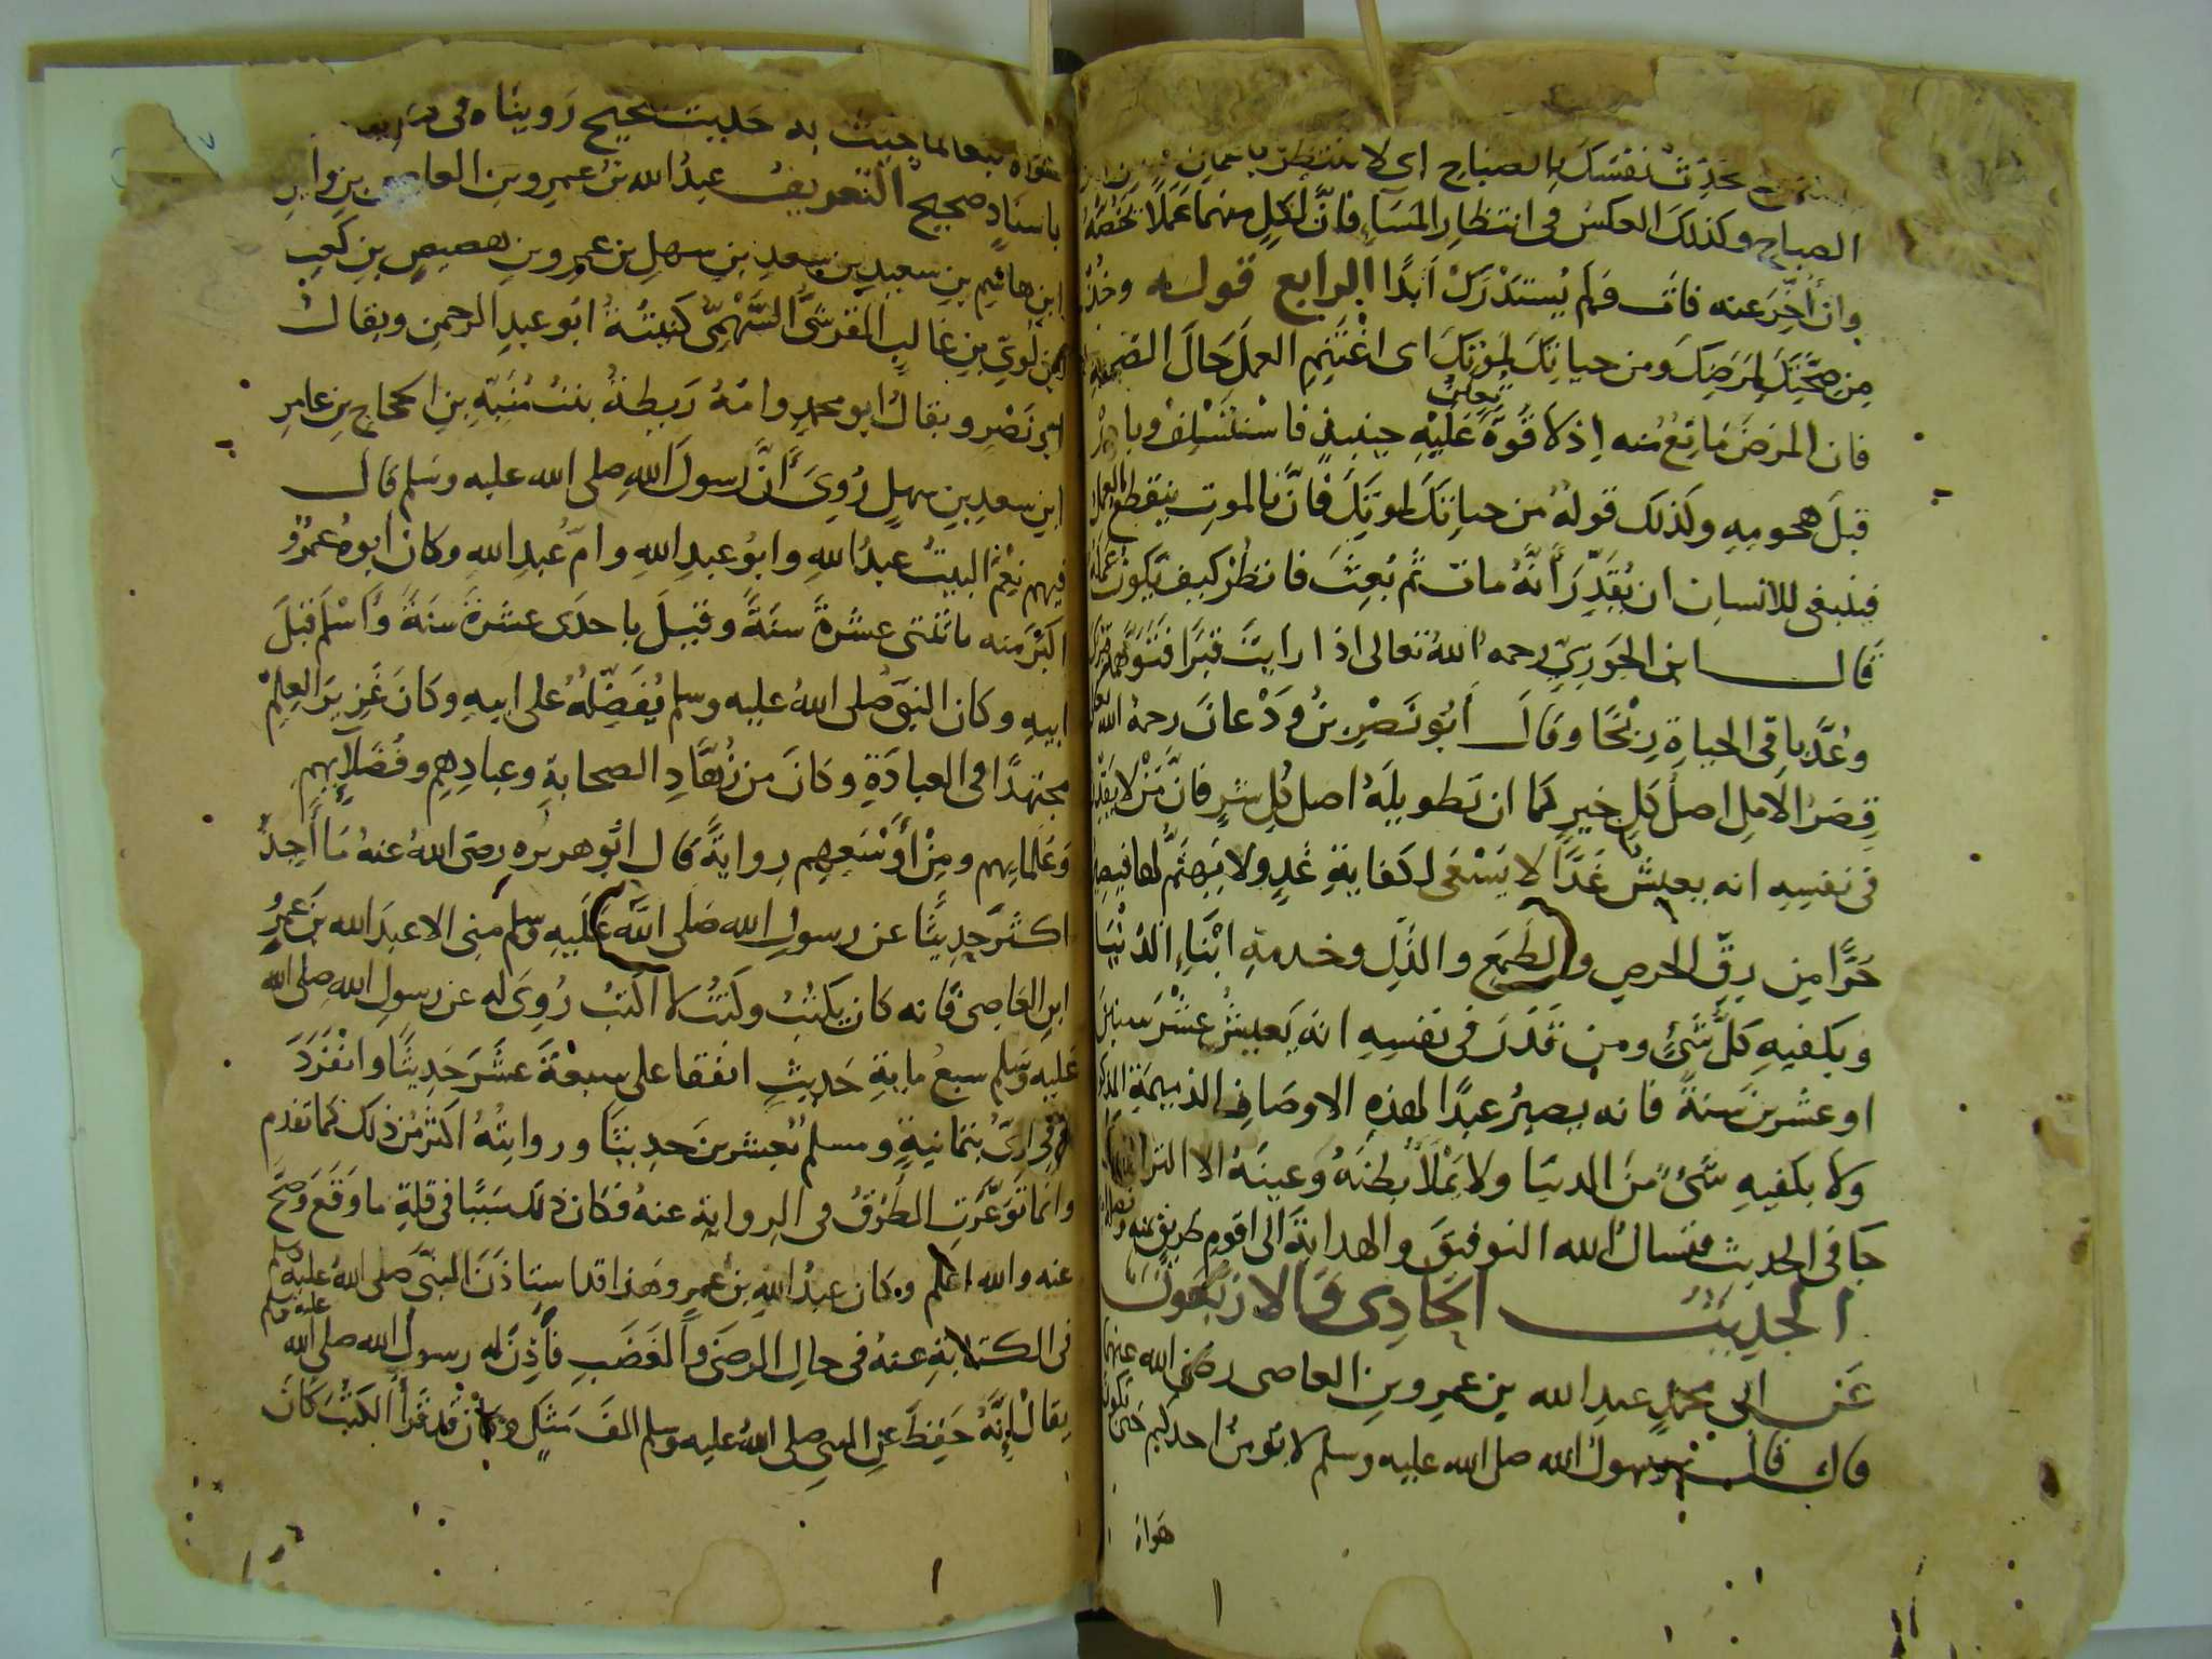 تحدث نفسك بالصباح اى لا تنتظر باعمال
الصباح وكذلك العكس فى انتظار المساء فانّ لكل منهما عملا يخصه
وان أخّر عنه فات فلم يُستدرك ابدًا الرابع قوله وخذ
من صحتك لمرضك ومن حياتك لموتك اى اغتنم العمل حال الصحة
فان المرض مانع منه إذ لا قوة عليه حينئذ فاستسلف وبادر
قبل هجومه وكذلك قوله من حياتك لموتك فانّ بالموت ينقطع العمل
فينبغى للانسان ان يقدّر أنّه مات ثم بُعث فانظر كيف تكون
قال ابن الجوزى رحمه الله تعالى اذا رايت قبرا فتوهمه قبرك
وعُدّ باقى الحياة ربحًا وقال أبو نصر بن ودعان رحمه الله
قصر الامل اصل كل خير كما ان تطويله اصل كل شر فانّ من لا يقدر
فى نفسه انه يعيش غدًا لا يسعى لكفاية غد ولا يهتم لها فيصير
حرًّا من رقّ الحرص والطمع والذل وخدمة ابناء الدنيا
ويكفيه كل شئ ومن قدر فى نفسه انه يعيش عشر سنين
او عشرين سنة فانه يصير عبدًا لهذه الاوصاف الذميمة
ولا يكفيه شئ من الدنيا ولا يملأ بطنه وعينه الا التراب
جا فى الحديث فنسال الله التوفيق والهداية الى اقوم طريق بمنه
الحديث الحادى والاربعون
عن ابى محمد عبد الله بن عمرو بن العاصى رضى الله عنهما
قال قال رسول الله صلى الله عليه وسلم لا يؤمن احدكم حتى يكون
هواه
هواه تبعا لما جئت به حديث صحيح رويناه فى
باسناد صحيح التعريف عبد الله بن عمرو بن العاص بن وايل
ابن هاشم بن سعيد بن سعد بن سهل بن عمرو بن هصيص بن كعب
بن لوىّ بن غالب القرشىّ السّهمىّ كنيته ابو عبد الرحمن ويقال
ابو نصر ويقال ابو محمد وامه ريطة بنت منبّه بن الحجاج بن عامر
ابن سعد بن سهل رُوى أنّ رسول الله صلى الله عليه وسلم قال
فيهم نعم البيت عبد الله وابو عبد الله وامّ عبد الله وكان ابوه عمرو
اكبر منه باثنتى عشرة سنة وقيل باحدى عشرة سنة وأسلم قبل
ابيه وكان النبى صلى الله عليه وسلم يفضّله على ابيه وكان غزير العلم
مجتهدًا فى العبادة وكان من زهّاد الصحابة وعبادهم وفضلآيهم
وعلمايهم ومن أوسعهم رواية قال ابو هريره رضى الله عنه ما أحد
اكثر حديثًا عن رسول الله صلى الله عليه وسلم منى الا عبد الله بن عمرو
ابن العاصى فانه كان يكتب وكنت لا اكتب رُوى له عن رسول الله صلى الله
عليه وسلم سبع ماية حديث اتفقا على سبعة عشر حديثًا وانفرد
البخارىّ بثمانية ومسلم بعشرين حديثا وروايته اكثر من ذلك كما تقدم
وانما توعّرت الطرق فى الرواية عنه فكان ذلك سببًا فى قلة ما وقع وصحّ
عنه والله اعلم وكان عبد الله بن عمرو هذا قد استاذن النبىّ صلى الله عليه وسلم
فى الكتابة عنه فى حال الرضى والغضب فأذن له رسول الله صلى الله عليه وسلم
يقال إنّه حفظ عن النبى صلى الله عليه وسلم الف مثل وكان قد قرأ الكتب كان